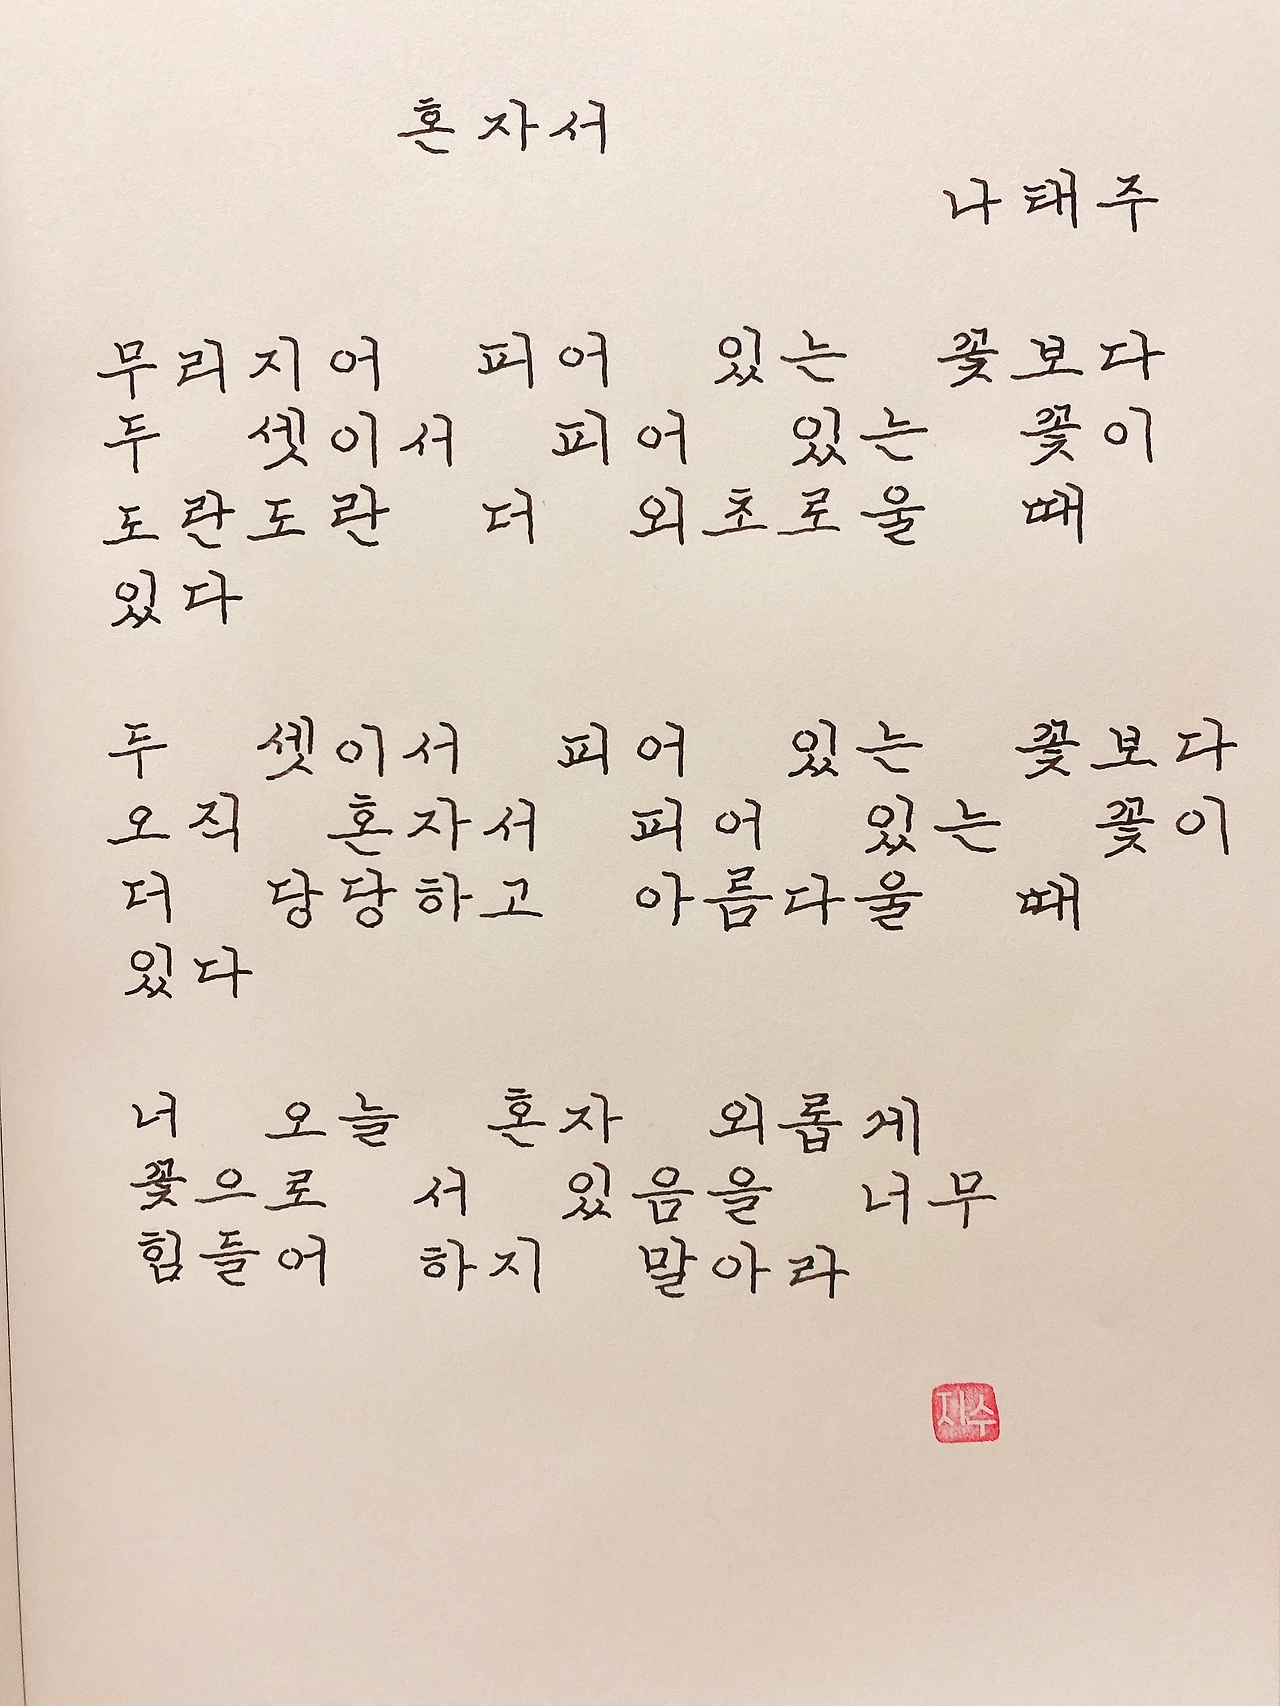 혼자서
나태주
무리지어 피어 있는 꽃보다
두 셋이서 피어 있는 꽃이
도란도란 더 외초로울 때
있다
두 셋이서 피어 있는 꽃보다
오직 혼자서 피어 있는 꽃이
더 당당하고 아름다울 때
있다
너 오늘 혼자 외롭게
꽃으로 서 있음을 너무
힘들어 하지 말아라
지수